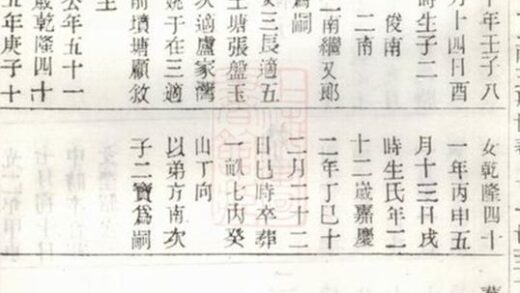 年壬子八
月十四日酉
時生子二
俊南
二南
一南繼又郎
爲嗣
女三長適五
土塘張盤玉
次適盧家灣
姚于在三適
前墳塘顧敘
主
公年五十一
歲乾隆四十
五年庚子十
女乾隆四十
一年丙申五
月十三日戌
時生氏年二
十二歲嘉慶
二年丁巳十
二月二十二
日巳時卒葬
一畝七丙癸
山丁向
以弟方南次
子二寶爲嗣